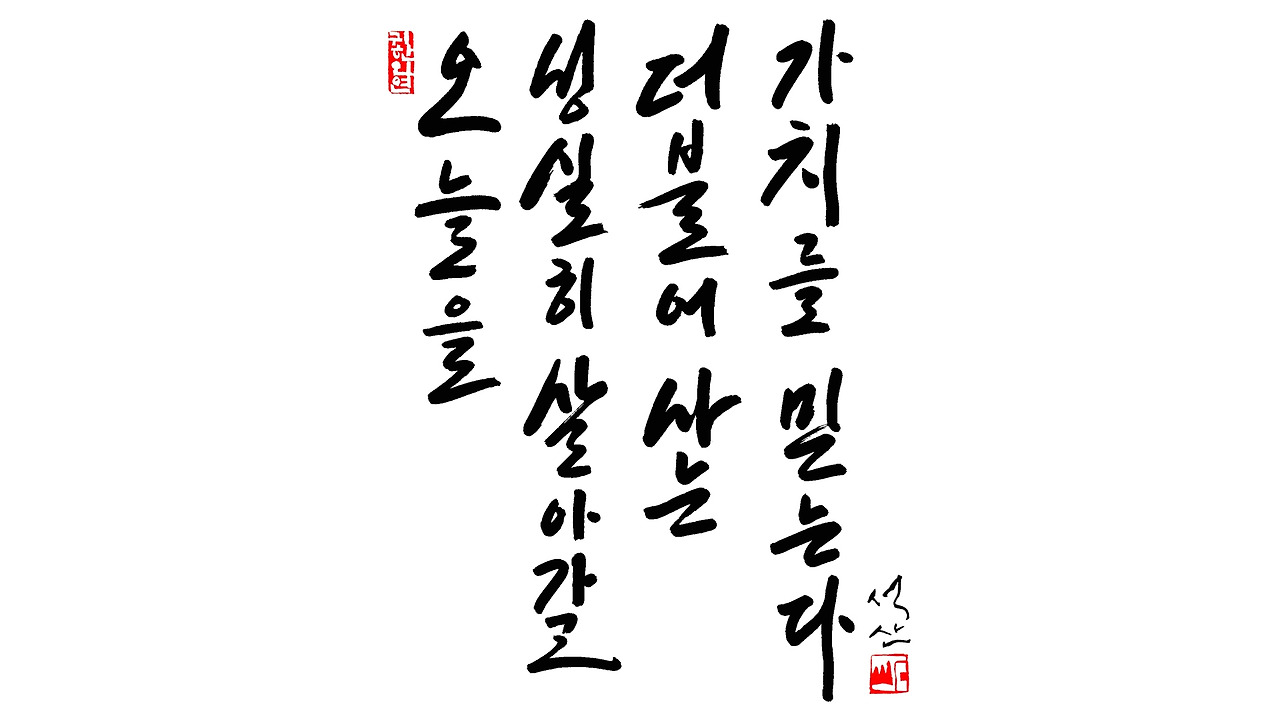 오늘을
성실히 살아갈
더불어 사는
가치를 믿는다
석산